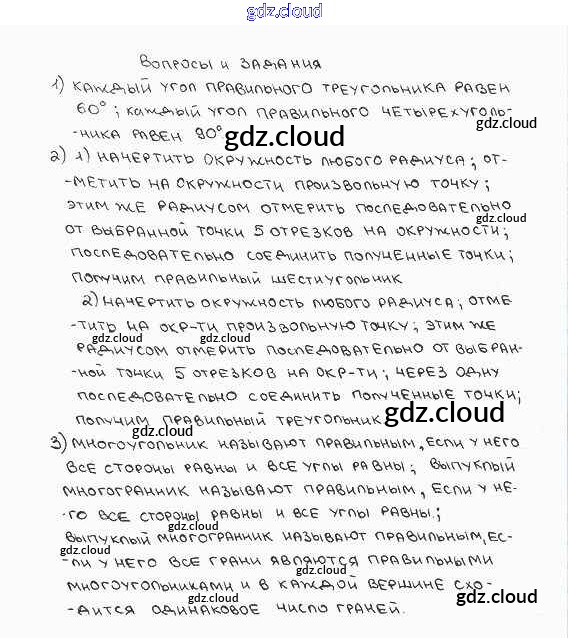 gdz.cloud
Вопросы и задания
1) каждый угол правильного треугольника равен
60°; каждый угол правильного четырехуголь-
gdz.cloud
-ника равен 90°
gdz.cloud
2) 1) начертить окружность любого радиуса; от-
-метить на окружности произвольную точку;
этим же радиусом отмерить последовательно
gdz.cloud
от выбранной точки 5 отрезков на окружности;
последовательно соединить полученные точки;
получим правильный шестиугольник
2) начертить окружность любого радиуса; отме
-тить на окр-ти произвольную точку; этим же
gdz.cloud gdz.cloud
радиусом отмерить последовательно от выбран-
-ной точки 5 отрезков на окр-ти; через одну
последовательно соединить полученные точки;
получим правильный треугольник
gdz.cloud
gdz.cloud
3) многоугольник называют правильным, если у него
все стороны равны и все углы равны; выпуклый
многогранник называют правильным, если у не-
-го все стороны равны и все углы равны;
gdz.cloud
выпуклый многогранник называют правильным, ес-
gdz.cloud
-ли у него все грани являются правильными
многоугольниками и в каждой вершине схо-
gdz.cloud
-дится одинаковое число граней.